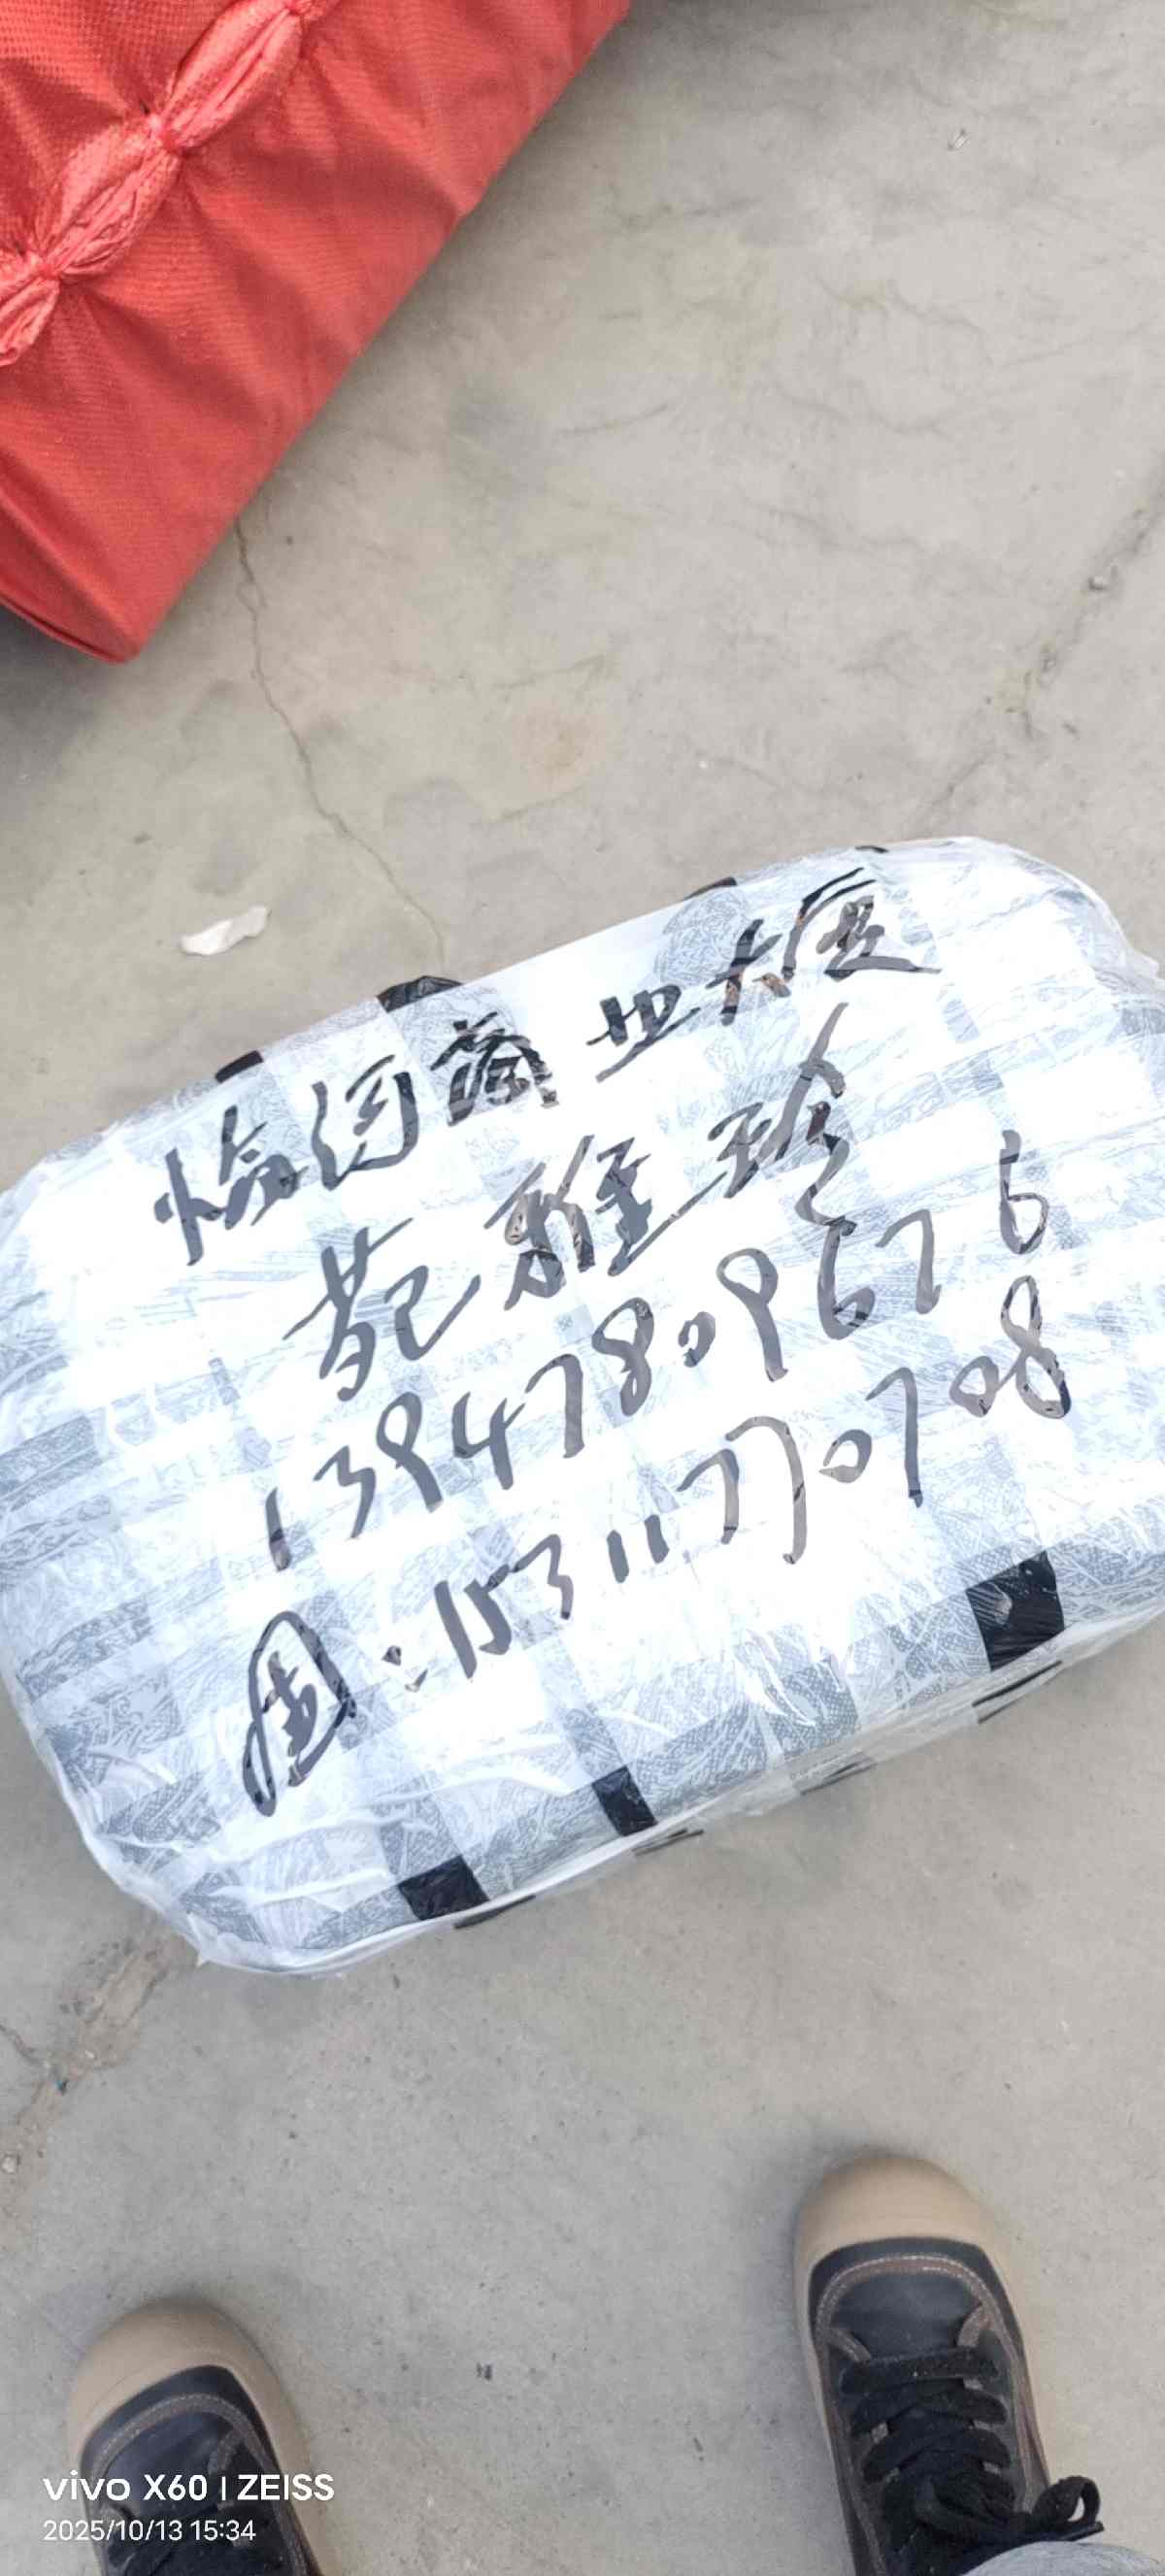 临河商业大厦
苑雅珍
13947809676
周:15311770708
vivo X60 | ZEISS
2025/10/13 15:34